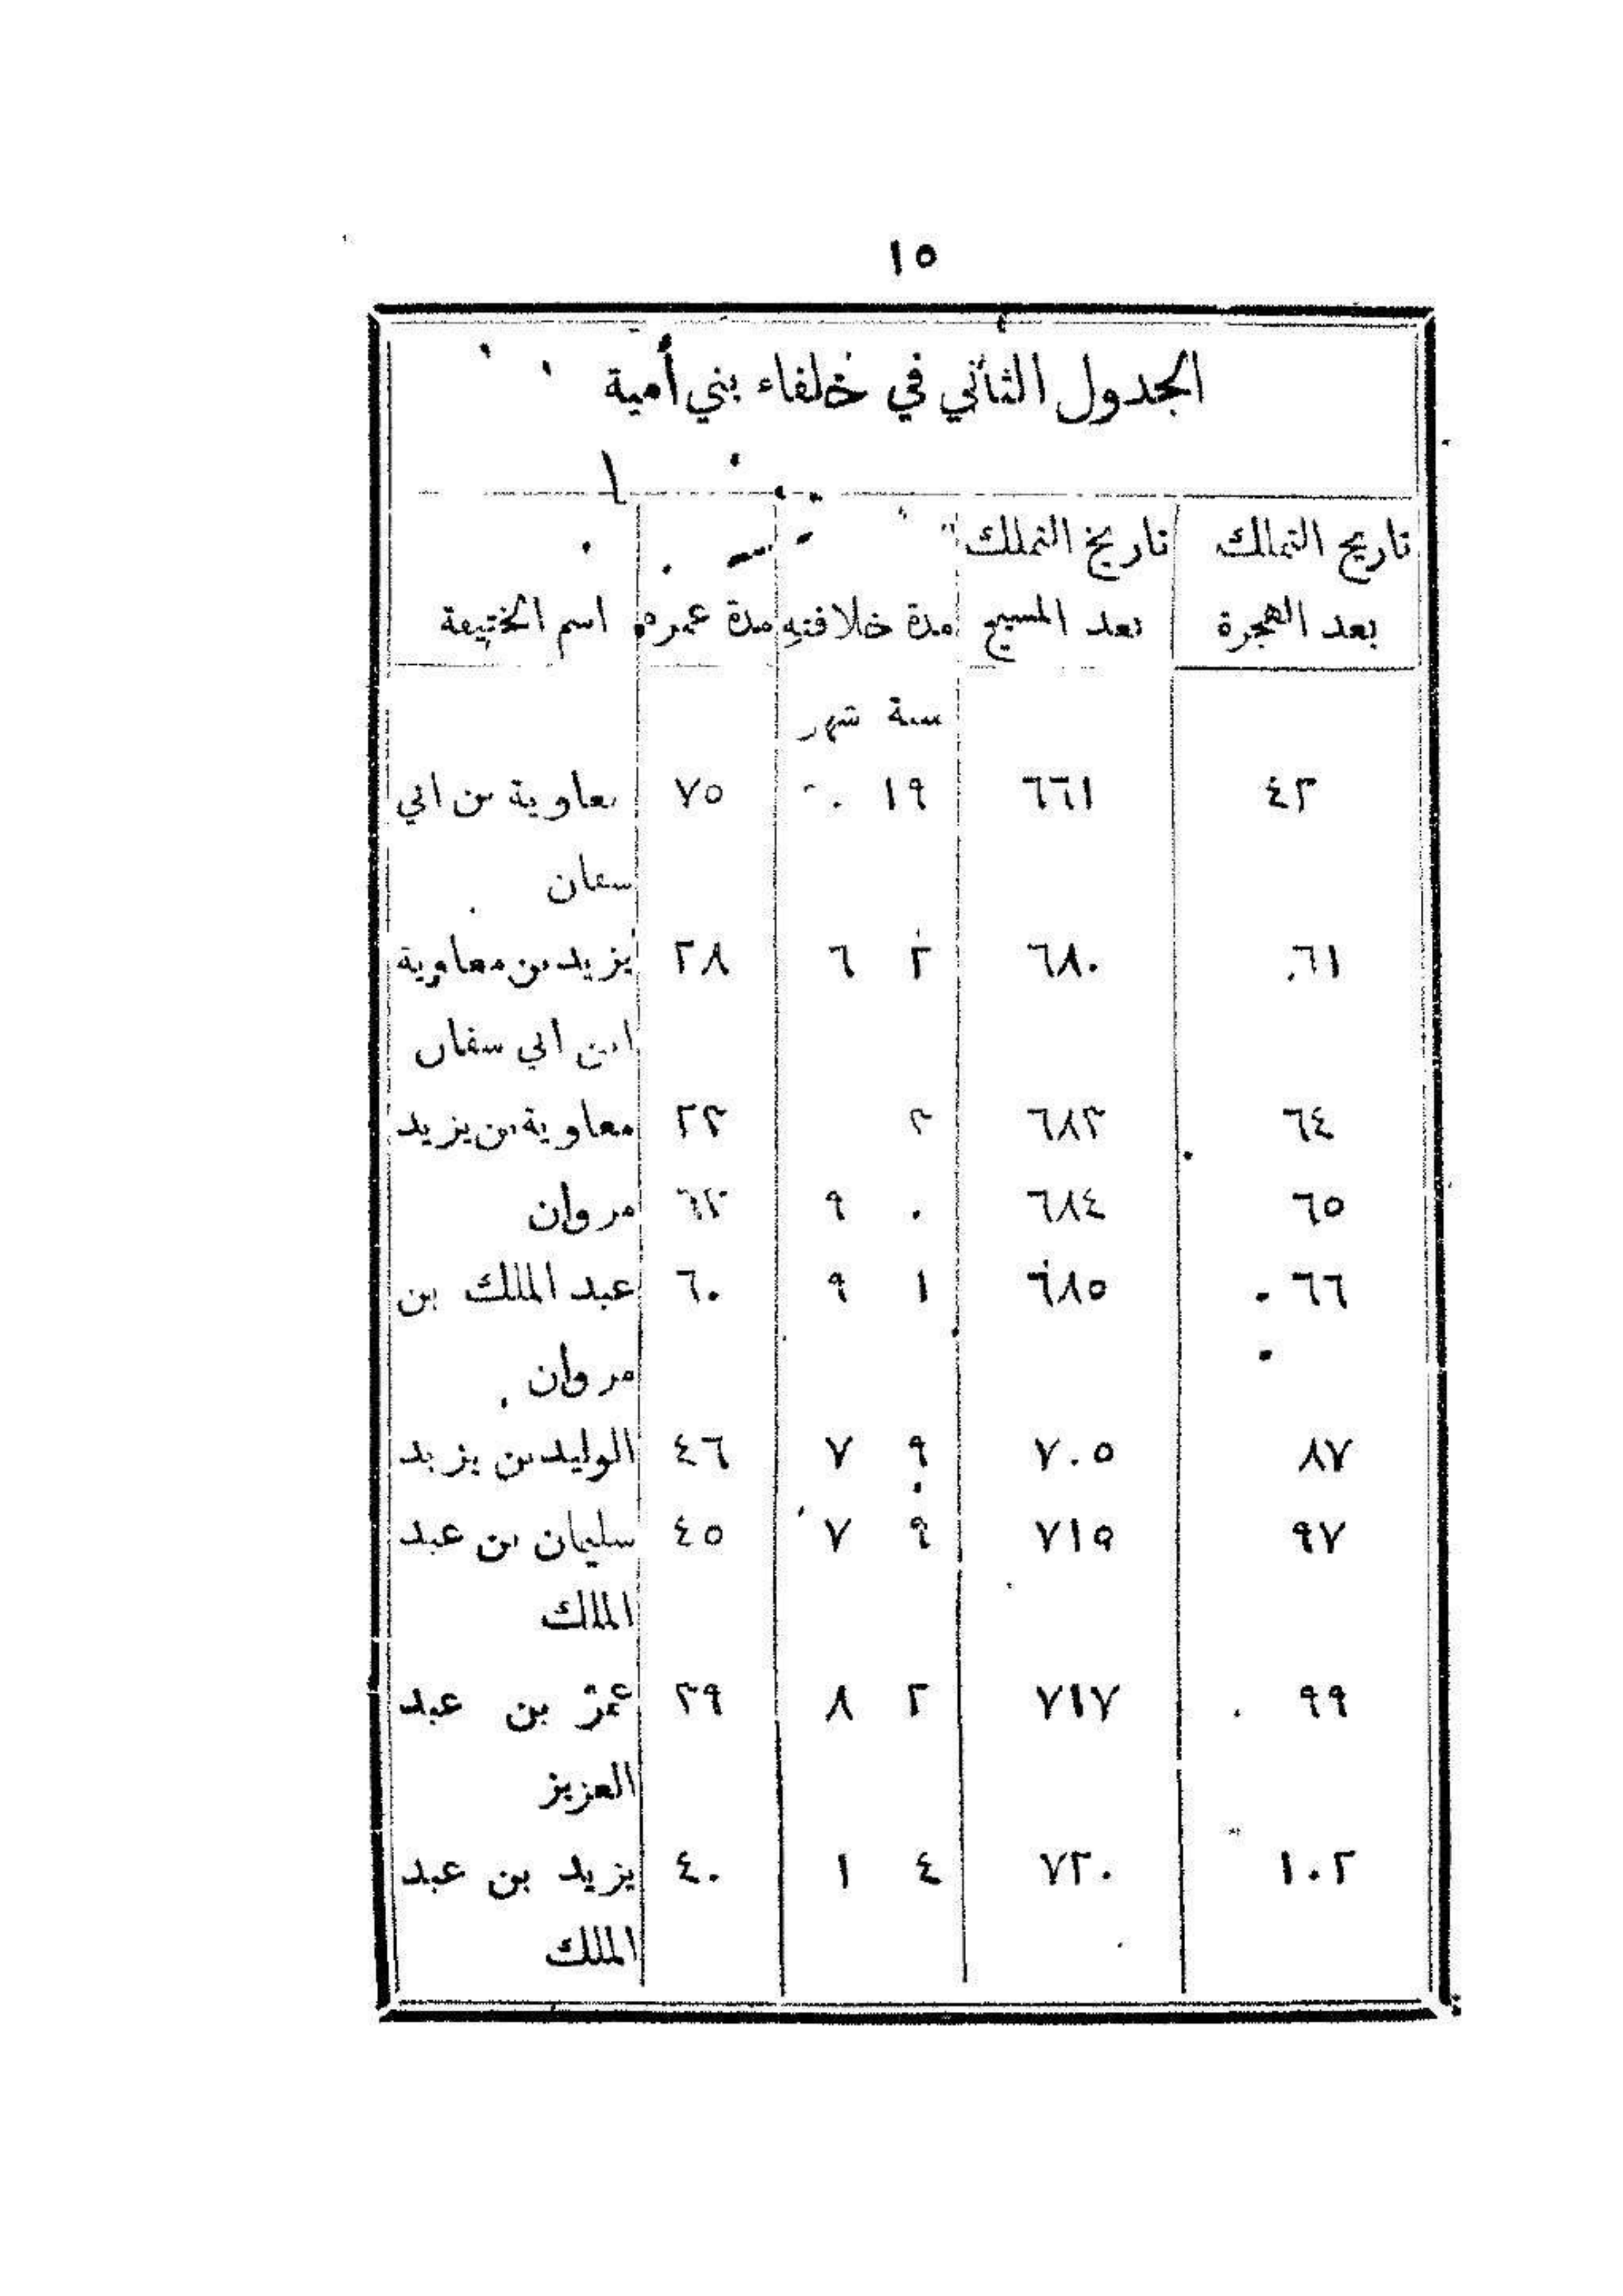 ١٥
الجدول الثاني في خلفاء بني أمية
تاريخ التملك تاريخ التملك
بعد الهجرة بعد المسيح مدة خلافتهِ مدة عمره اسم الخليفة
سنة شهر
٤٢ ٦٦١ ١٩ ٠ ٧٥ معاوية بن ابي
سفيان
٦١ ٦٨٠ ٢ ٦ ٣٨ يزيد بن معاوية
ابن ابي سفيان
٦٤ ٦٨٣ ٣ ٢٣ معاوية بن يزيد
٦٥ ٦٨٤ ٠ ٩ ٦٣ مروان
٦٦ ٦٨٥ ١ ٩ ٦٠ عبد الملك بن
مروان
٨٧ ٧٠٥ ٩ ٧ ٤٦ الوليد بن يزيد
٩٧ ٧١٥ ٩ ٧ ٤٥ سليمان بن عبد
الملك
٩٩ ٧١٧ ٢ ٨ ٣٩ عمر بن عبد
العزيز
١٠٢ ٧٢٠ ٤ ١ ٤٠ يزيد بن عبد
الملك